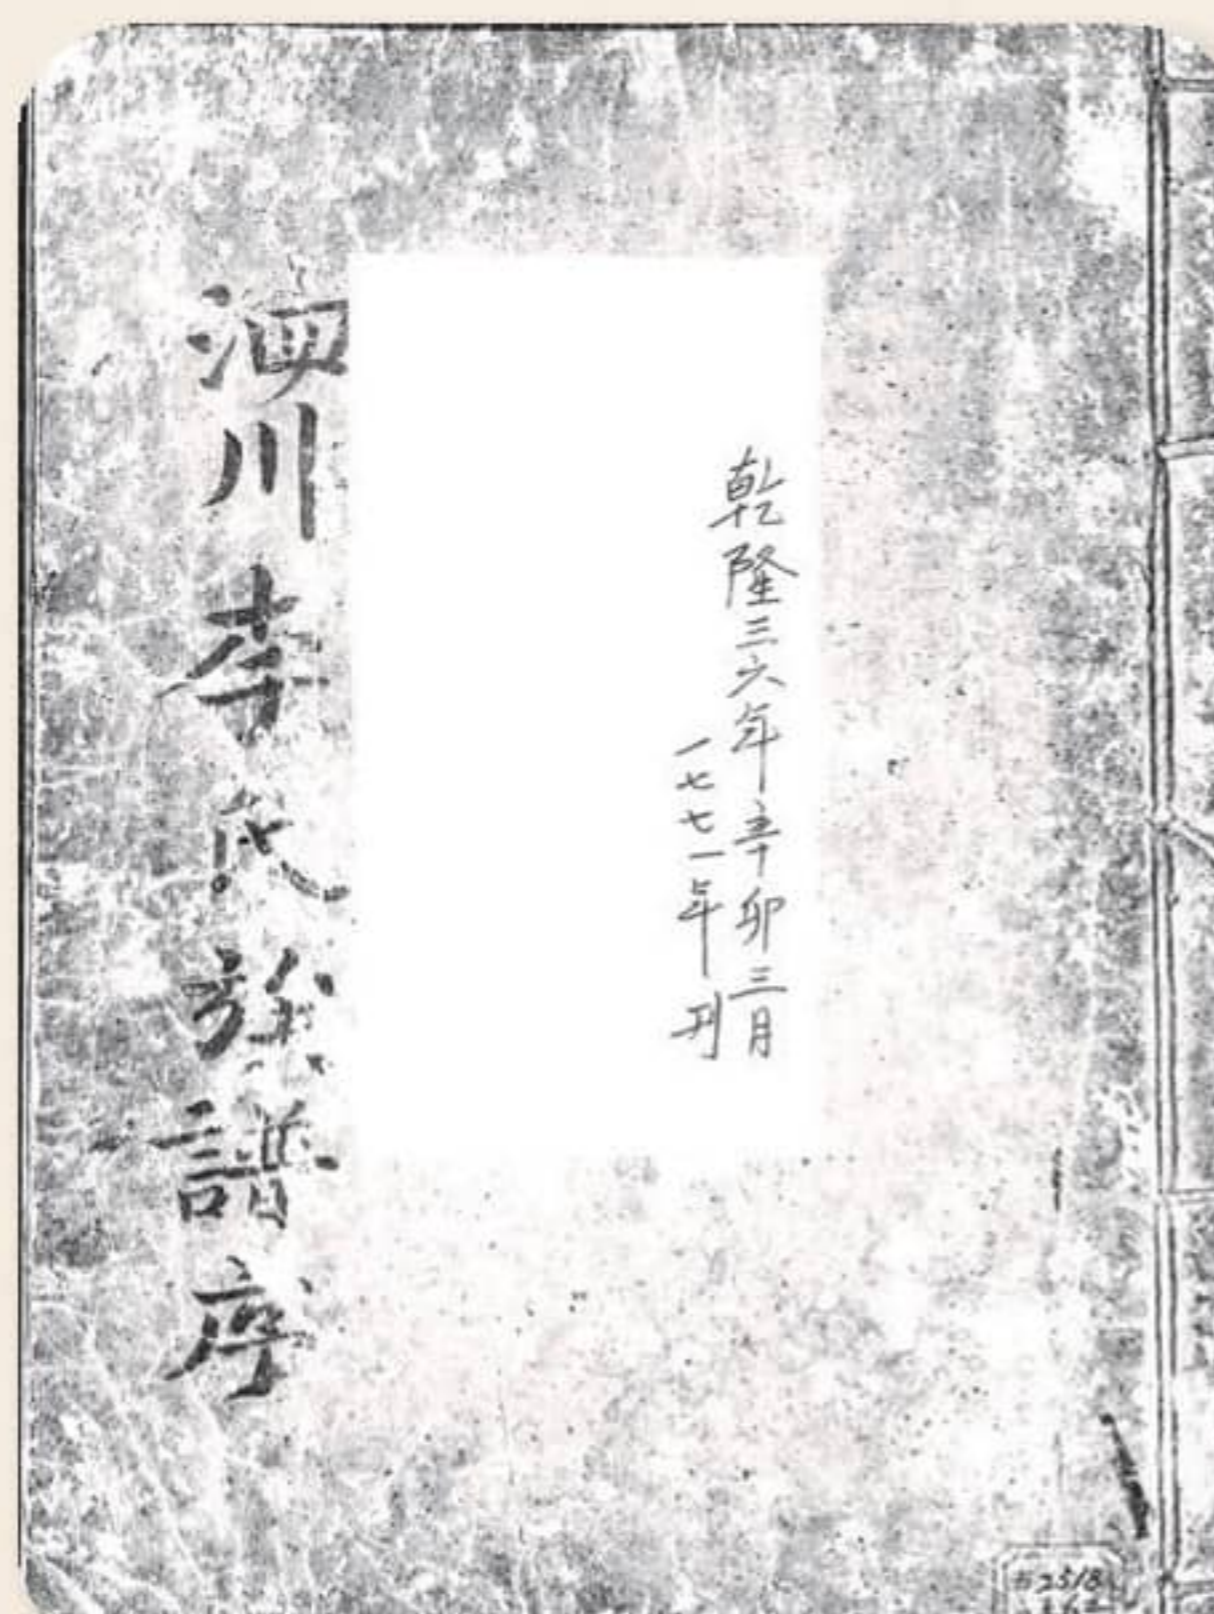 乾隆三六年辛卯三月
一七七一年刊
川李氏族譜序
2518